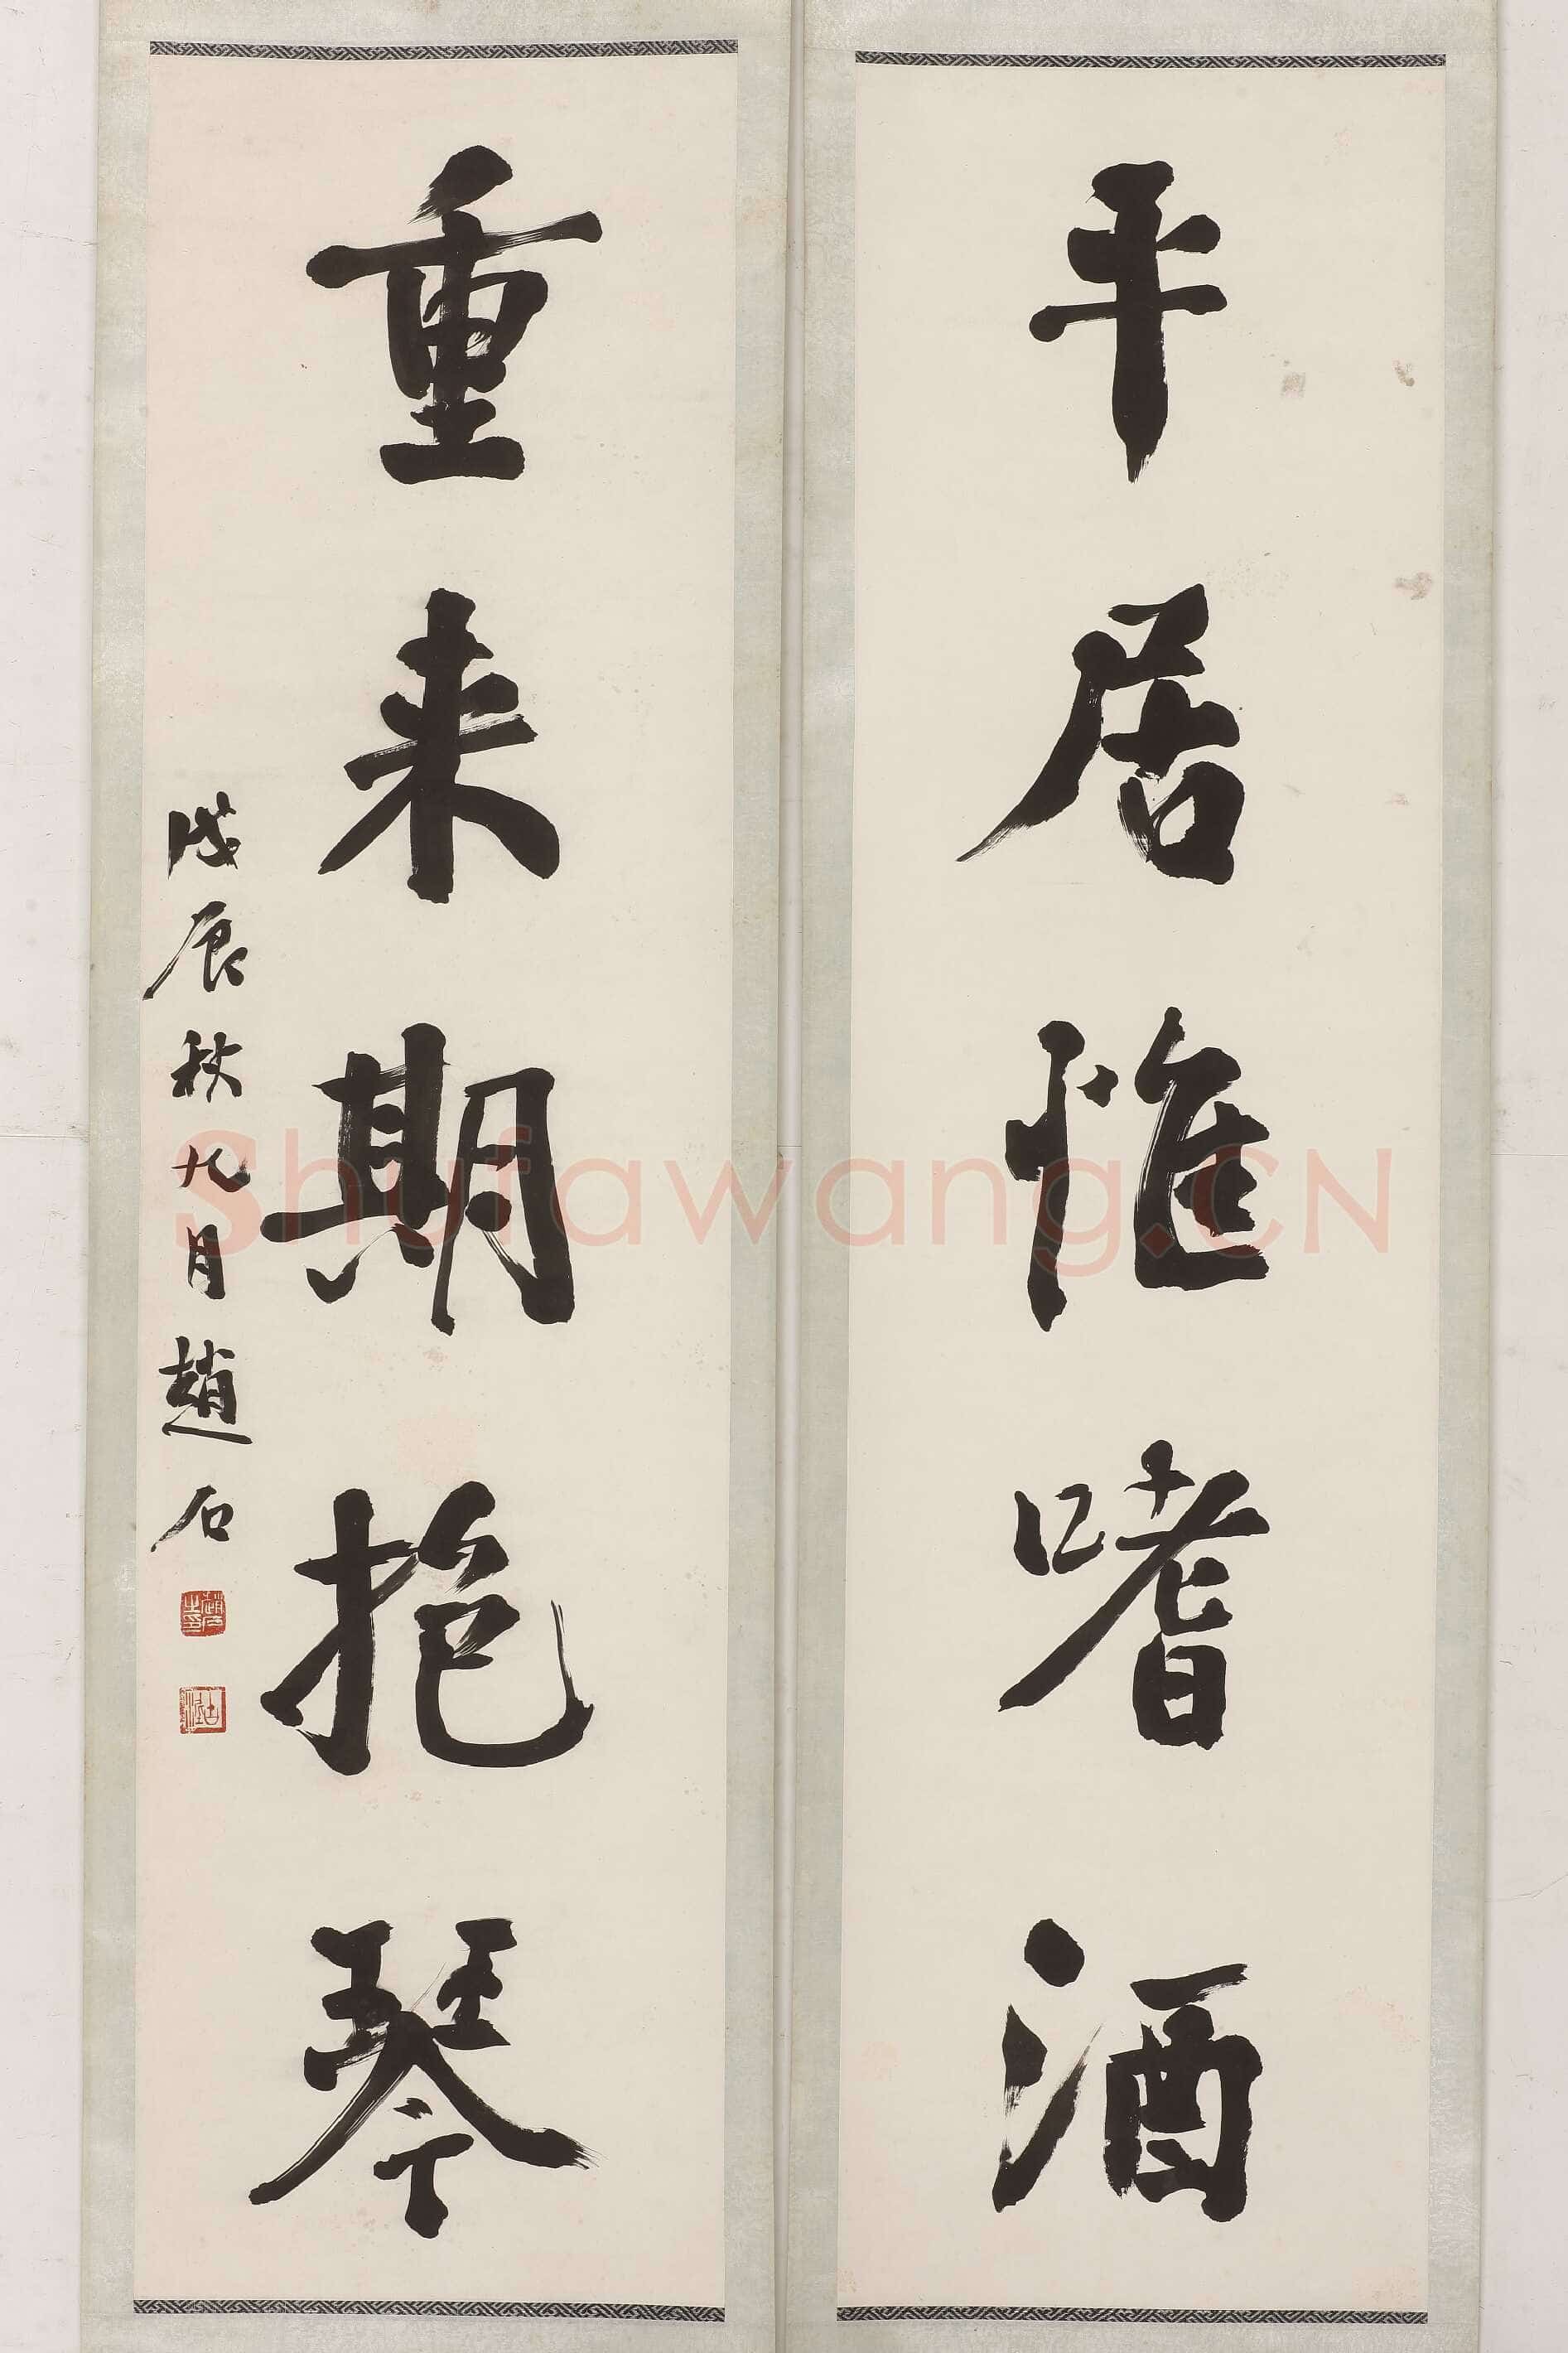 平居惟嗜酒
重来期抱琴
戊辰秋九月趙石
趙石之印
古泥
Shufawang.CN